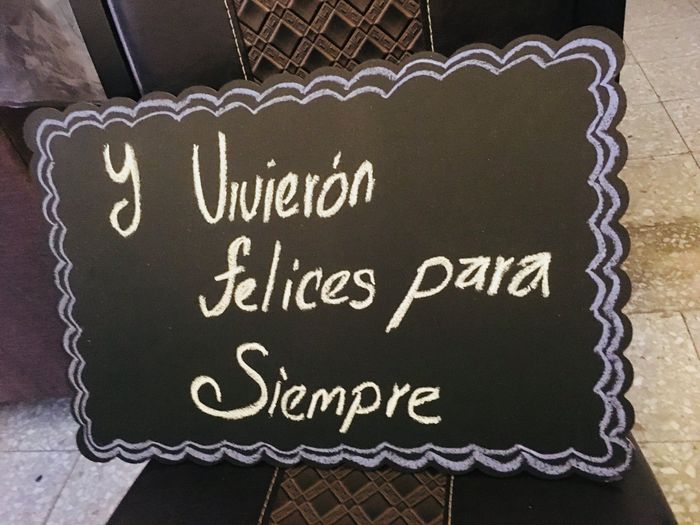 y Vivierón
felices para
Siempre